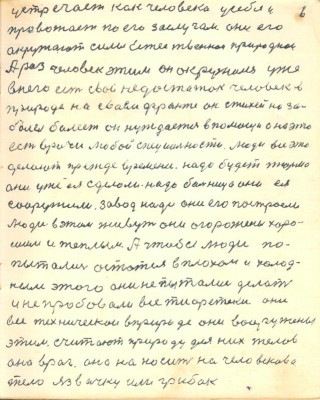 6
встречает как человека у себя и
провожает по его заслугам. они его
окружают силы естественной природной
А раз человек этим он окружился уже
в него есть свой недостаток человек в
природе на своем фронте он стихейно за-
болел болеет он нуждается в помощи а на это
есть врачи любой специальности. Люди все это
делают прежде времени. надо будет тюрьмо
они уже ея сделали. надо больница они ея
сооружили. завод надо они его построили
люди в этом живут они огорожены хоро-
шим и теплым. А чтобы люди по-
пытались остатся в плохом и холод-
ном этого они не пытались делать
и не пробовали все теоретики они
все технически в природе они вооружены
этим. считают природу для них телов
она враг. она наносит на человеково
тело язвичку или грибок